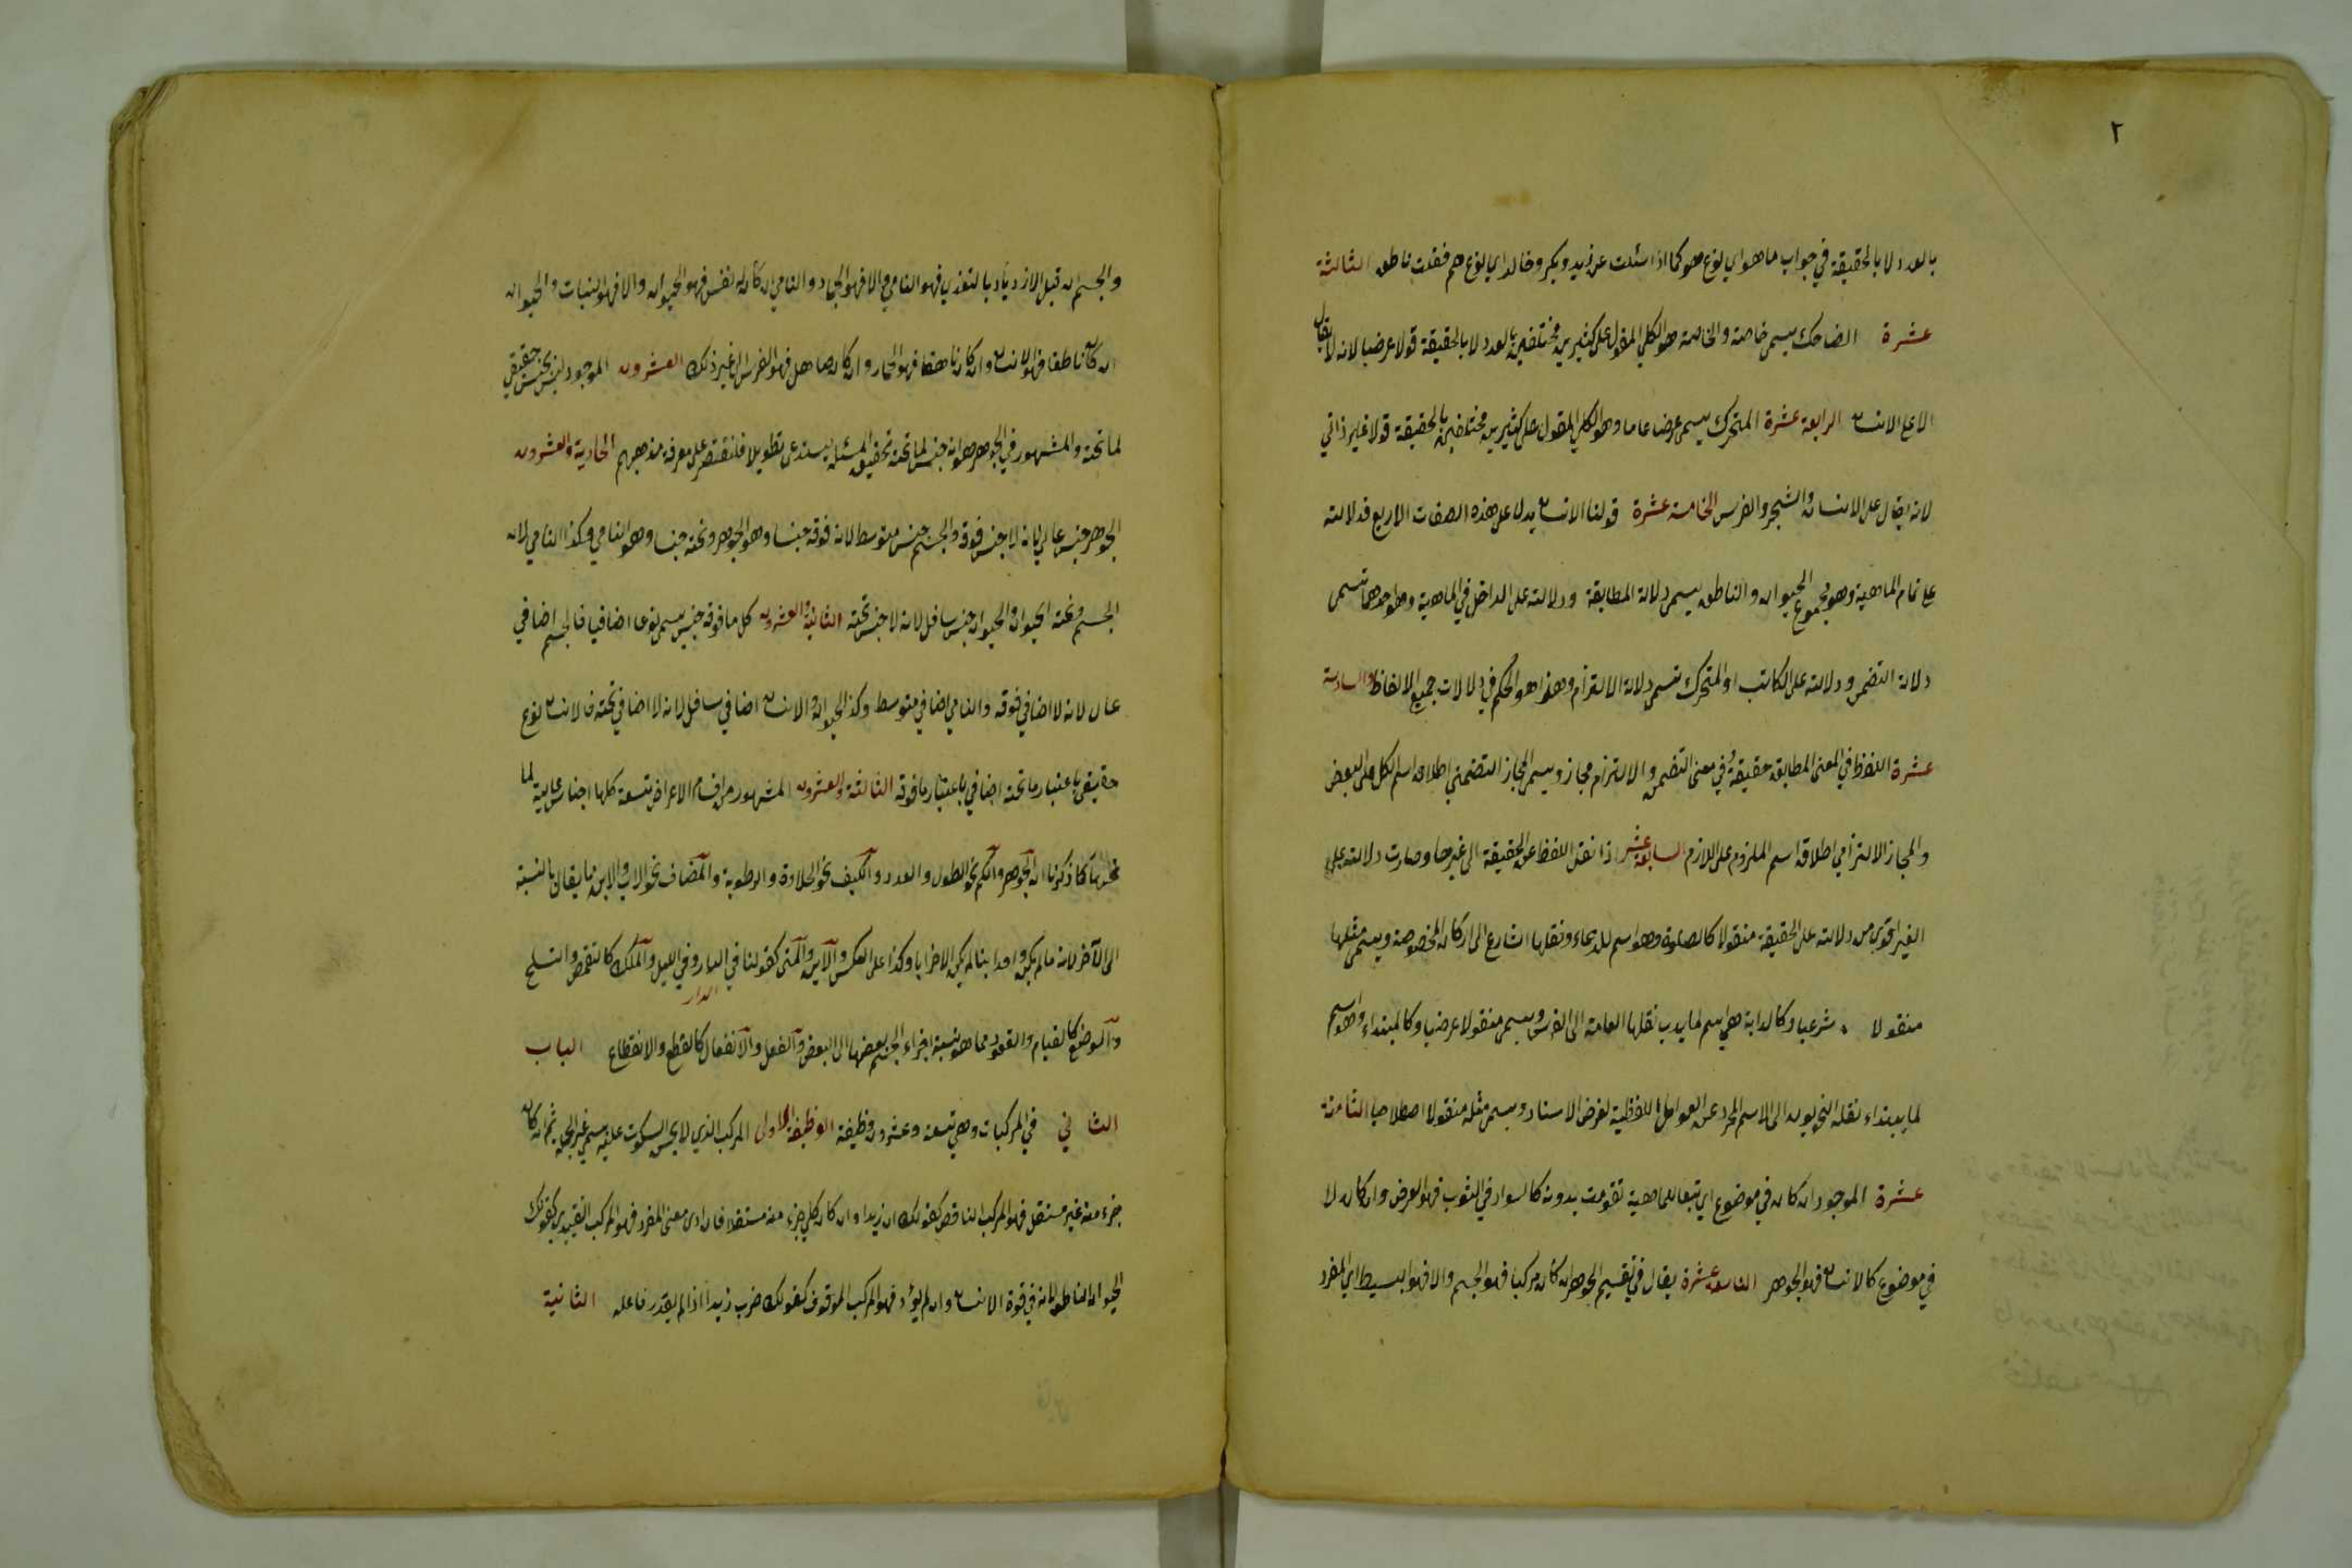 ٢
بالعدد لا بالحقيقة في جواب ما هو اي نوع هو كما اذا سئلت عن زيد وبكر وخالد اي نوع هم فقلت ناطق الثالثة
عشرة الضاحك يسمى خاصة والخاصة هو الكلي المقول على كثيرين مختلفين بالعدد لا بالحقيقة قولا عرضيا لانه لا يقال
الا على الانسان الرابعة عشرة المتحرك يسمى عرضا عاما وهو الكلي المقول على كثيرين مختلفين بالحقيقة قولا غير ذاتي
لانه يقال على الانسان والشجر والفرس الخامسة عشرة قولنا الانسان يدل على هذه الصفات الاربع فدلالته
على تمام الماهية وهو مجموع الحيوان والناطق يسمى دلالة المطابقة ودلالته على الداخل في الماهية وهو احدهما تسمى
دلالة التضمن ودلالته على الكاتب او المتحرك تسمى دلالة الالتزام وهذا هو الحكم في دلالات جميع الالفاظ السادسة
عشرة اللفظ في المعنى المطابقة حقيقة وفي معنى التضمن والالتزام مجاز ويسمى المجاز التضمني اطلاق اسم الكل على البعض
والمجاز الالتزامي اطلاق اسم الملزوم على اللازم السابعة عشر اذا نقل اللفظ عن الحقيقة الى غيرها وصارت دلالته على
الغير اقوى من دلالته على الحقيقة منقولا كالصلوة وهو اسم للدعاء ونقلها الشارع الى اركان المخصوصة ويسمى مثلها
منقولا شرعيا وكالدابة هي اسم لما يدب نقلها العامة الى الفرس ويسمى منقولا عرضيا وكالمبتداء وهو اسم
لما يبتداء نقله النحويون الى الاسم المجرد عن العوامل اللفظية لغرض الاسناد ويسمى مثله منقولا اصطلاحيا الثامنة
عشرة الموجود ان كان في موضوع اي تبعا لماهية تقومت بدونه كالسواد في الثوب فهو العرض وان كان لا
في موضوع كالانسان فهو الجوهر التاسعة عشرة يقال في تقسيم الجوهر ان كان مركبا فهو الجسم والا فهو البسيط اي المفرد
والجسم ان قبل الازدياد بالتغذي فهو النامي والا فهو الجماد والنامي ان كان له نفس فهو الحيوان والا فهو النبات والحيوان
ان كان ناطقا فهو الانسان وان كان ناهقا فهو الحمار وان كان صاهل فهو الفرس الى غير ذلك العشرون الموجود ليس بجنس حقيقي
لما تحته والمشهور في الجوهر هو انه جنس لما تحته تحقيق المسئلة يستدعى تطويلا فلنقتصر على معرفة مذهبهم الحادية والعشرون
الجوهر جنس عالي لانه لا جنس فوقه والجسم جنس متوسط لانه فوقه جنسا وهو الجوهر وتحته جنسا وهو النامي وكذا النامي لانه
الجسم وتحته الحيوان والحيوان جنس سافل لانه لا جنس تحته الثانية والعشرون كل ما فوقه جنس يسمى نوعا اضافيا فالجسم اضافي
عال لانه لا اضافي فوقه والنامي اضافي متوسط وكذا الحيوان والانسان اضافي سافل لانه لا اضافي تحته فالانسان نوع
حقيقي باعتبار ما تحته اضافي باعتبار ما فوقه الثالثة والعشرون المشهور من اقسام الاعراض تسعة كلها اجناس عالية لما
تحتها كما ذكرنا ان الجوهر والكم نحو الطول والعدد والكيف نحو الحلاوة والرطوبة والمضاف نحو الاب والابن ما يقال بالنسبة
الى الآخر لانه ما لم يكن واحد ابنا لم يكن الاخر ابا وكذا على العكس والاين والمتى كقولنا في الدار وفي الليل والملك كالتقمص والتسلح
الدار
والموضع كالقيام والقعود مما هو نسبة اجزاء الجسم بعضها الى البعض والفعل والانفعال كالقطع والانقطاع الباب
الثاني في المركبات وهي تسعة وعشرون وظيفة الوظيفة الاولى المركب الذي لا يحسن السكوت عليه يسمى غير الجملة ثم ان كان
جزء منه غير مستقل فهو المركب الناقص كقولك ان زيدا وان كان كل جزء منه مستقلا فان ادى معنى المفرد فهو المركب التقييدي كقولك
الحيوان الناطق لانه في قوة الانسان وان لم يؤد فهو المركب الموقوف كقولك ضرب زيدا اذا لم يقدر فاعله الثانية